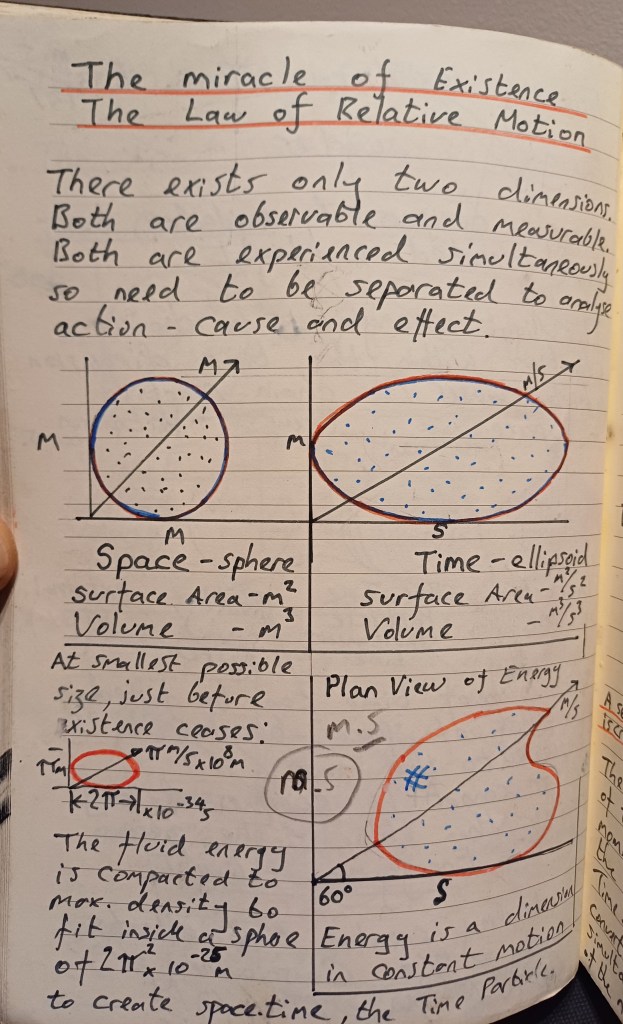 The miracle of Existence
The Law of Relative Motion
There exists only two dimensions.
Both are observable and measurable.
Both are experienced simultaneously
so need to be separated to analyse
action - cause and effect.
M
M
M
Space - sphere
surface Area - m²
Volume - m³
m/s
M
S
Time - ellipsoid
surface Area - m²/s²
Volume - m³/s³
At smallest possible
size, just before
existence ceases:
π m/s x10⁸m
πm
2π x10⁻³⁴s
The fluid energy
is compacted to
max. density to
fit inside a sphere
of 2π² x 10⁻²⁶m
to create space.time, the Time Particle.
Plan View of Energy
m/s
m.s
m.s
#
60°
S
Energy is a dimension
in constant motion
A se
is c
The
of
mom
the
Time
conver
simulta
of the